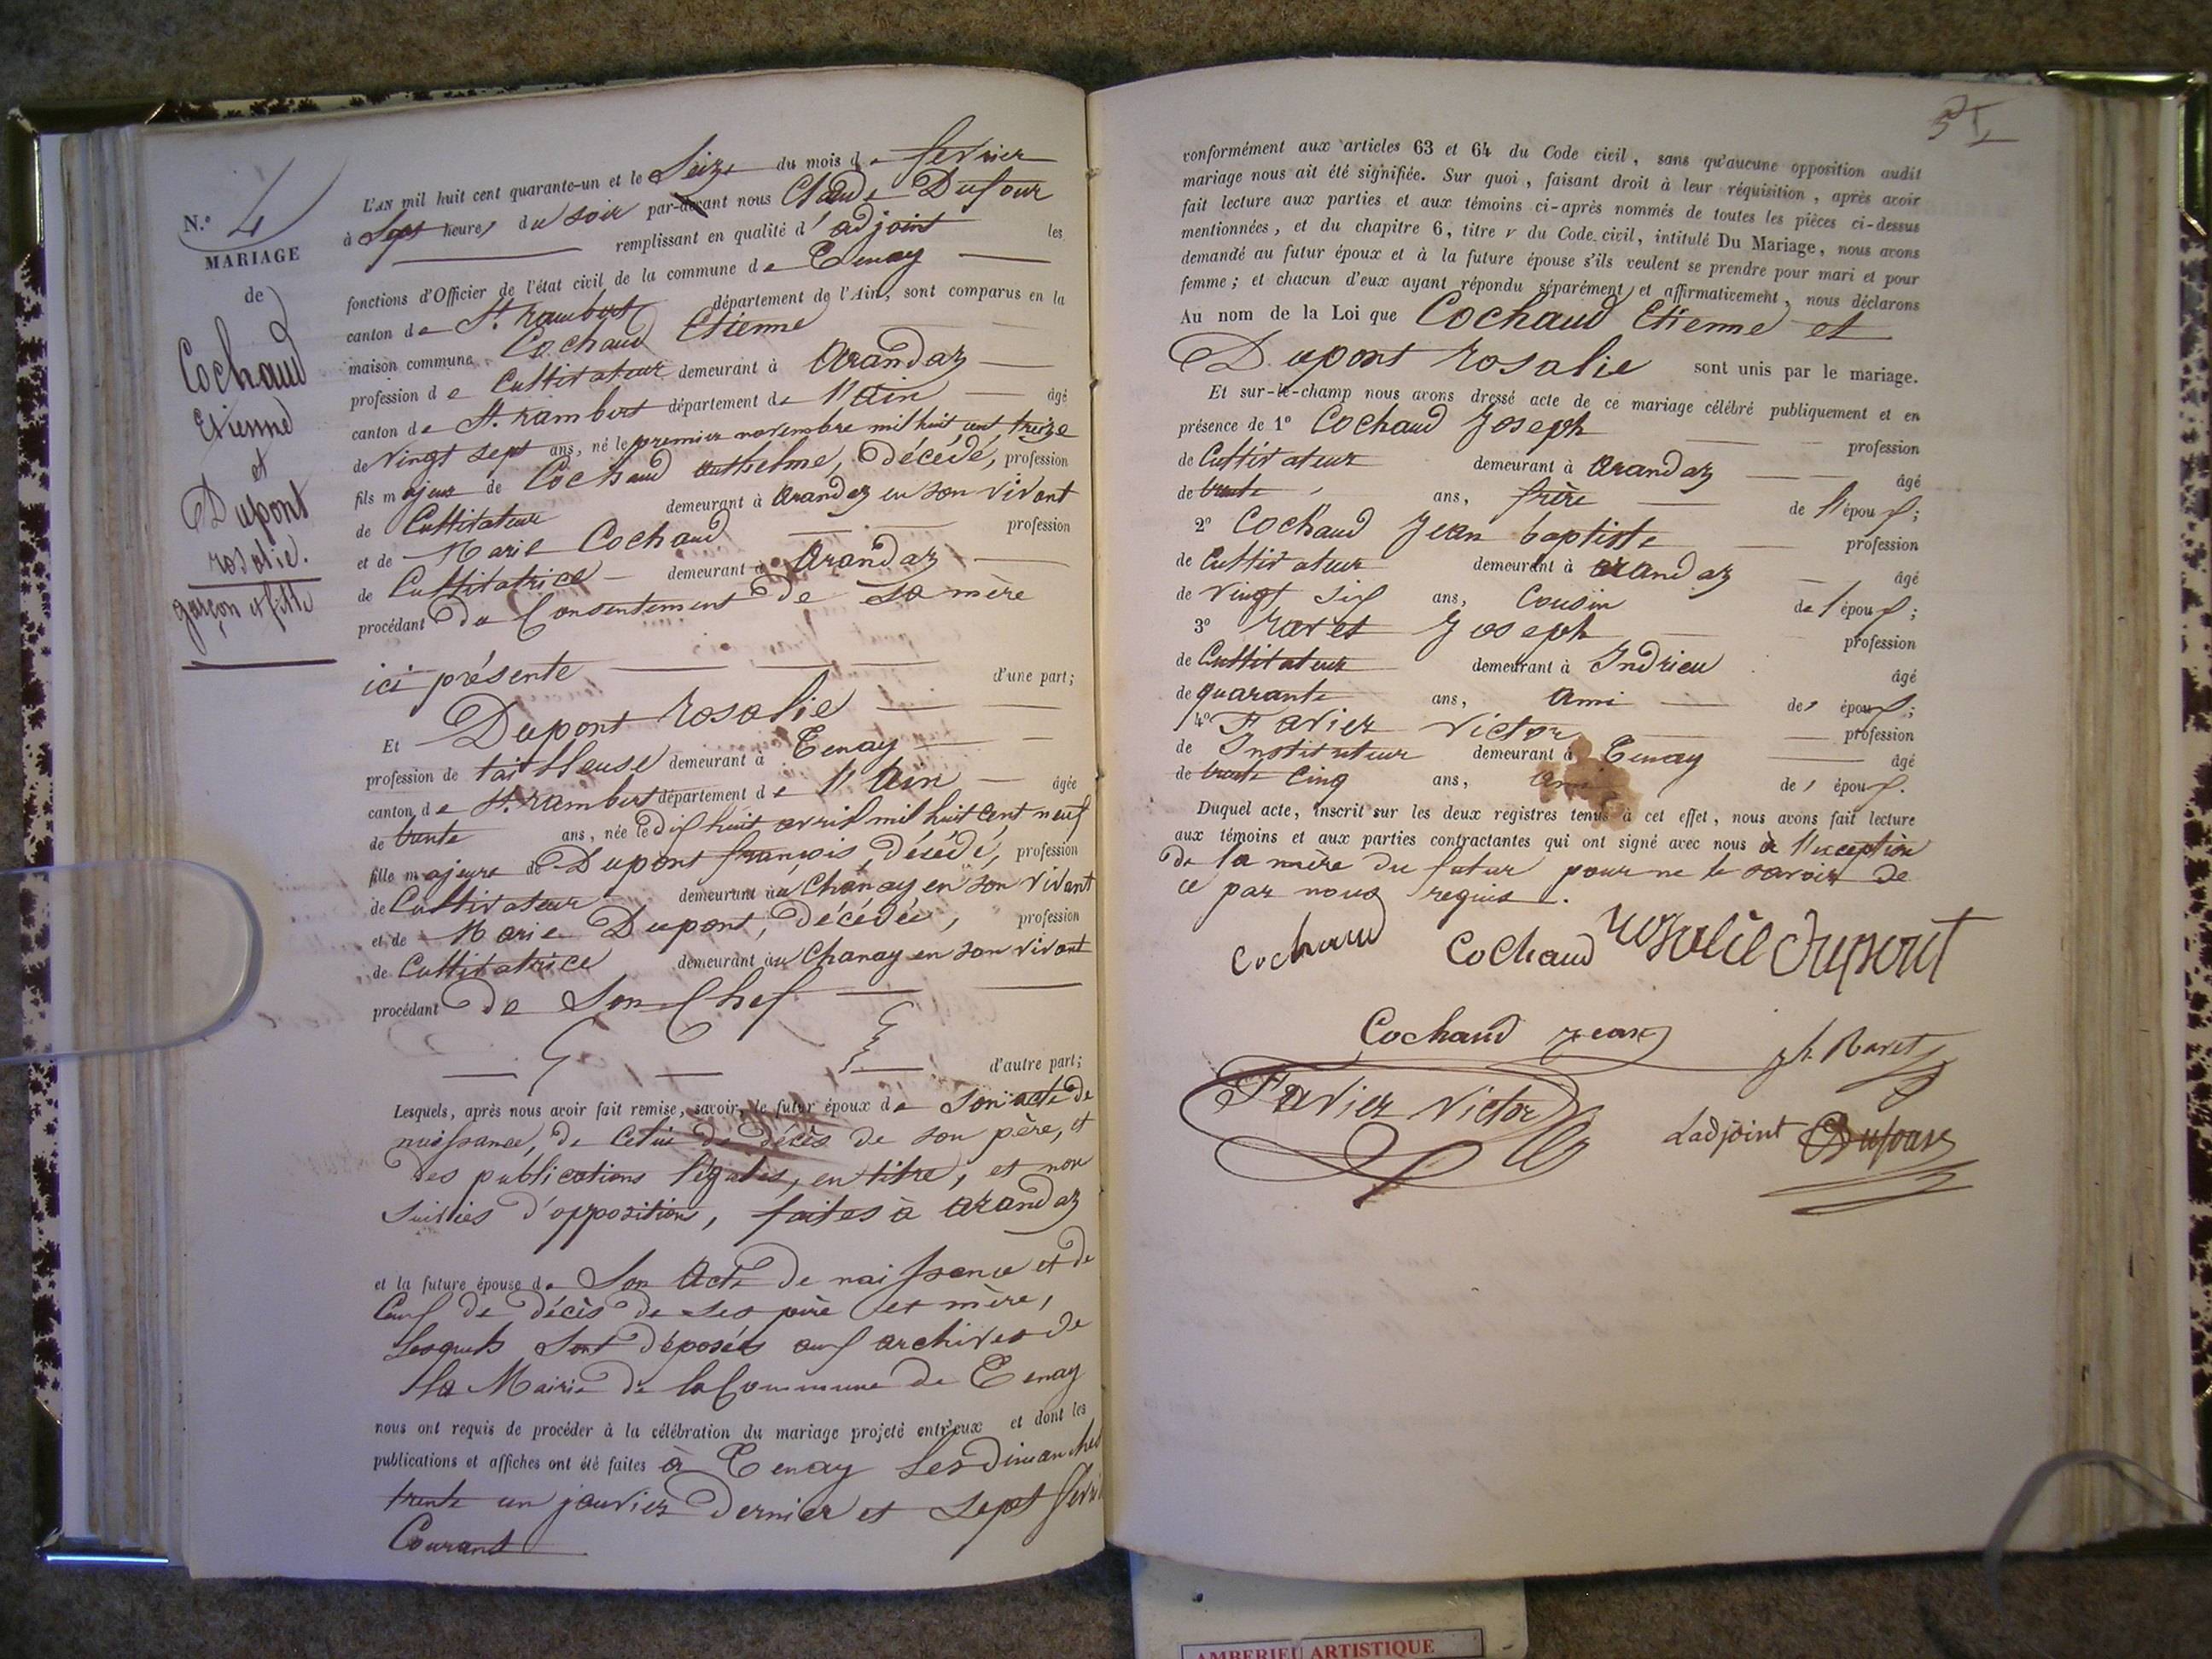 N.° 4
MARIAGE
de
Cochaud
Etienne
et
Dupont
rosalie.
garçon et fille
L'AN mil huit cent quarante-un et le Seize du mois de fevrier
à Sept heures du soir par-devant nous Claude Dufour
remplissant en qualité d'adjoint les
fonctions d'Officier de l'état civil de la commune de Tenay
canton de St. rambert département de l'Ain, sont comparus en la
maison commune Cochaud Etienne
profession de Cultivateur demeurant à Arandaz
canton de St. rambert département de l'Ain âgé
de Vingt sept ans, né le premier novembre mil huit cent treize
fils majeur de Cochaud anthelme, Décédé, profession
de Cultivateur demeurant à Arandaz en son vivant
et de Marie Cochaud profession
de Cultivatrice demeurant à Arandaz
procédant du Consentement de sa mère
ici présente d'une part;
Et Dupont rosalie
profession de tailleuse demeurant à Tenay
canton de St. rambert département de l'Ain âgée
de trente ans, née le dix huit avril mil huit cent neuf
fille majeure de Dupont françois, décédé, profession
de Cultivateur demeurant au Chanay en son vivant
et de Marie Dupont, Décédée, profession
de Cultivatrice demeurant au Chanay en son vivant
procédant de Son Chef
d'autre part;
Lesquels, après nous avoir fait remise, savoir, le futur époux de son acte de
naissance, de Celui de décès de son père, et
des publications légales, en titre, et non
suivies d'oppositions, faites à Arandaz
et la future épouse de Son Acte de naissance et de
Ceux de décès de ses père et mère,
Lesquels Sont déposés aux archives de
la Mairie de la Commune de Tenay
nous ont requis de procéder à la célébration du mariage projeté entr'eux et dont les
publications et affiches ont été faites à Tenay Les Dimanches
trente un janvier Dernier et Sept fevrier
Courant
conformément aux articles 63 et 64 du Code civil, sans qu'aucune opposition audit
mariage nous ait été signifiée. Sur quoi, faisant droit à leur réquisition, après avoir
fait lecture aux parties et aux témoins ci-après nommés de toutes les pièces ci-dessus
mentionnées, et du chapitre 6, titre v du Code civil, intitulé Du Mariage, nous avons
demandé au futur époux et à la future épouse s'ils veulent se prendre pour mari et pour
femme; et chacun d'eux ayant répondu séparément et affirmativement, nous déclarons
Au nom de la Loi que Cochaud Etienne et
Dupont rosalie sont unis par le mariage.
Et sur-le-champ nous avons dressé acte de ce mariage célébré publiquement et en
présence de 1° Cochaud Joseph profession
de Cultivateur demeurant à Arandaz âgé
de trente ans, frère de l'époux;
2° Cochaud Jean baptiste profession
de Cultivateur demeurant à Arandaz âgé
de Vingt Six ans, Cousin de l'époux;
3° Ravet Joseph profession
de Cultivateur demeurant à Indrieu âgé
de quarante ans, Ami des époux;
4° Favier Victor profession
de Instituteur demeurant à Tenay âgé
de trente Cinq ans, Ami des époux.
Duquel acte, inscrit sur les deux registres tenus à cet effet, nous avons fait lecture
aux témoins et aux parties contractantes qui ont signé avec nous à l'exception
de la mère du futur pour ne le savoir de
ce par nous requis.
Cochaud Cochaud rosalie dupont
Cochaud jean jh. Ravet
Favier Victor Ladjoint Dufour
AMBERIEU ARTISTIQUE